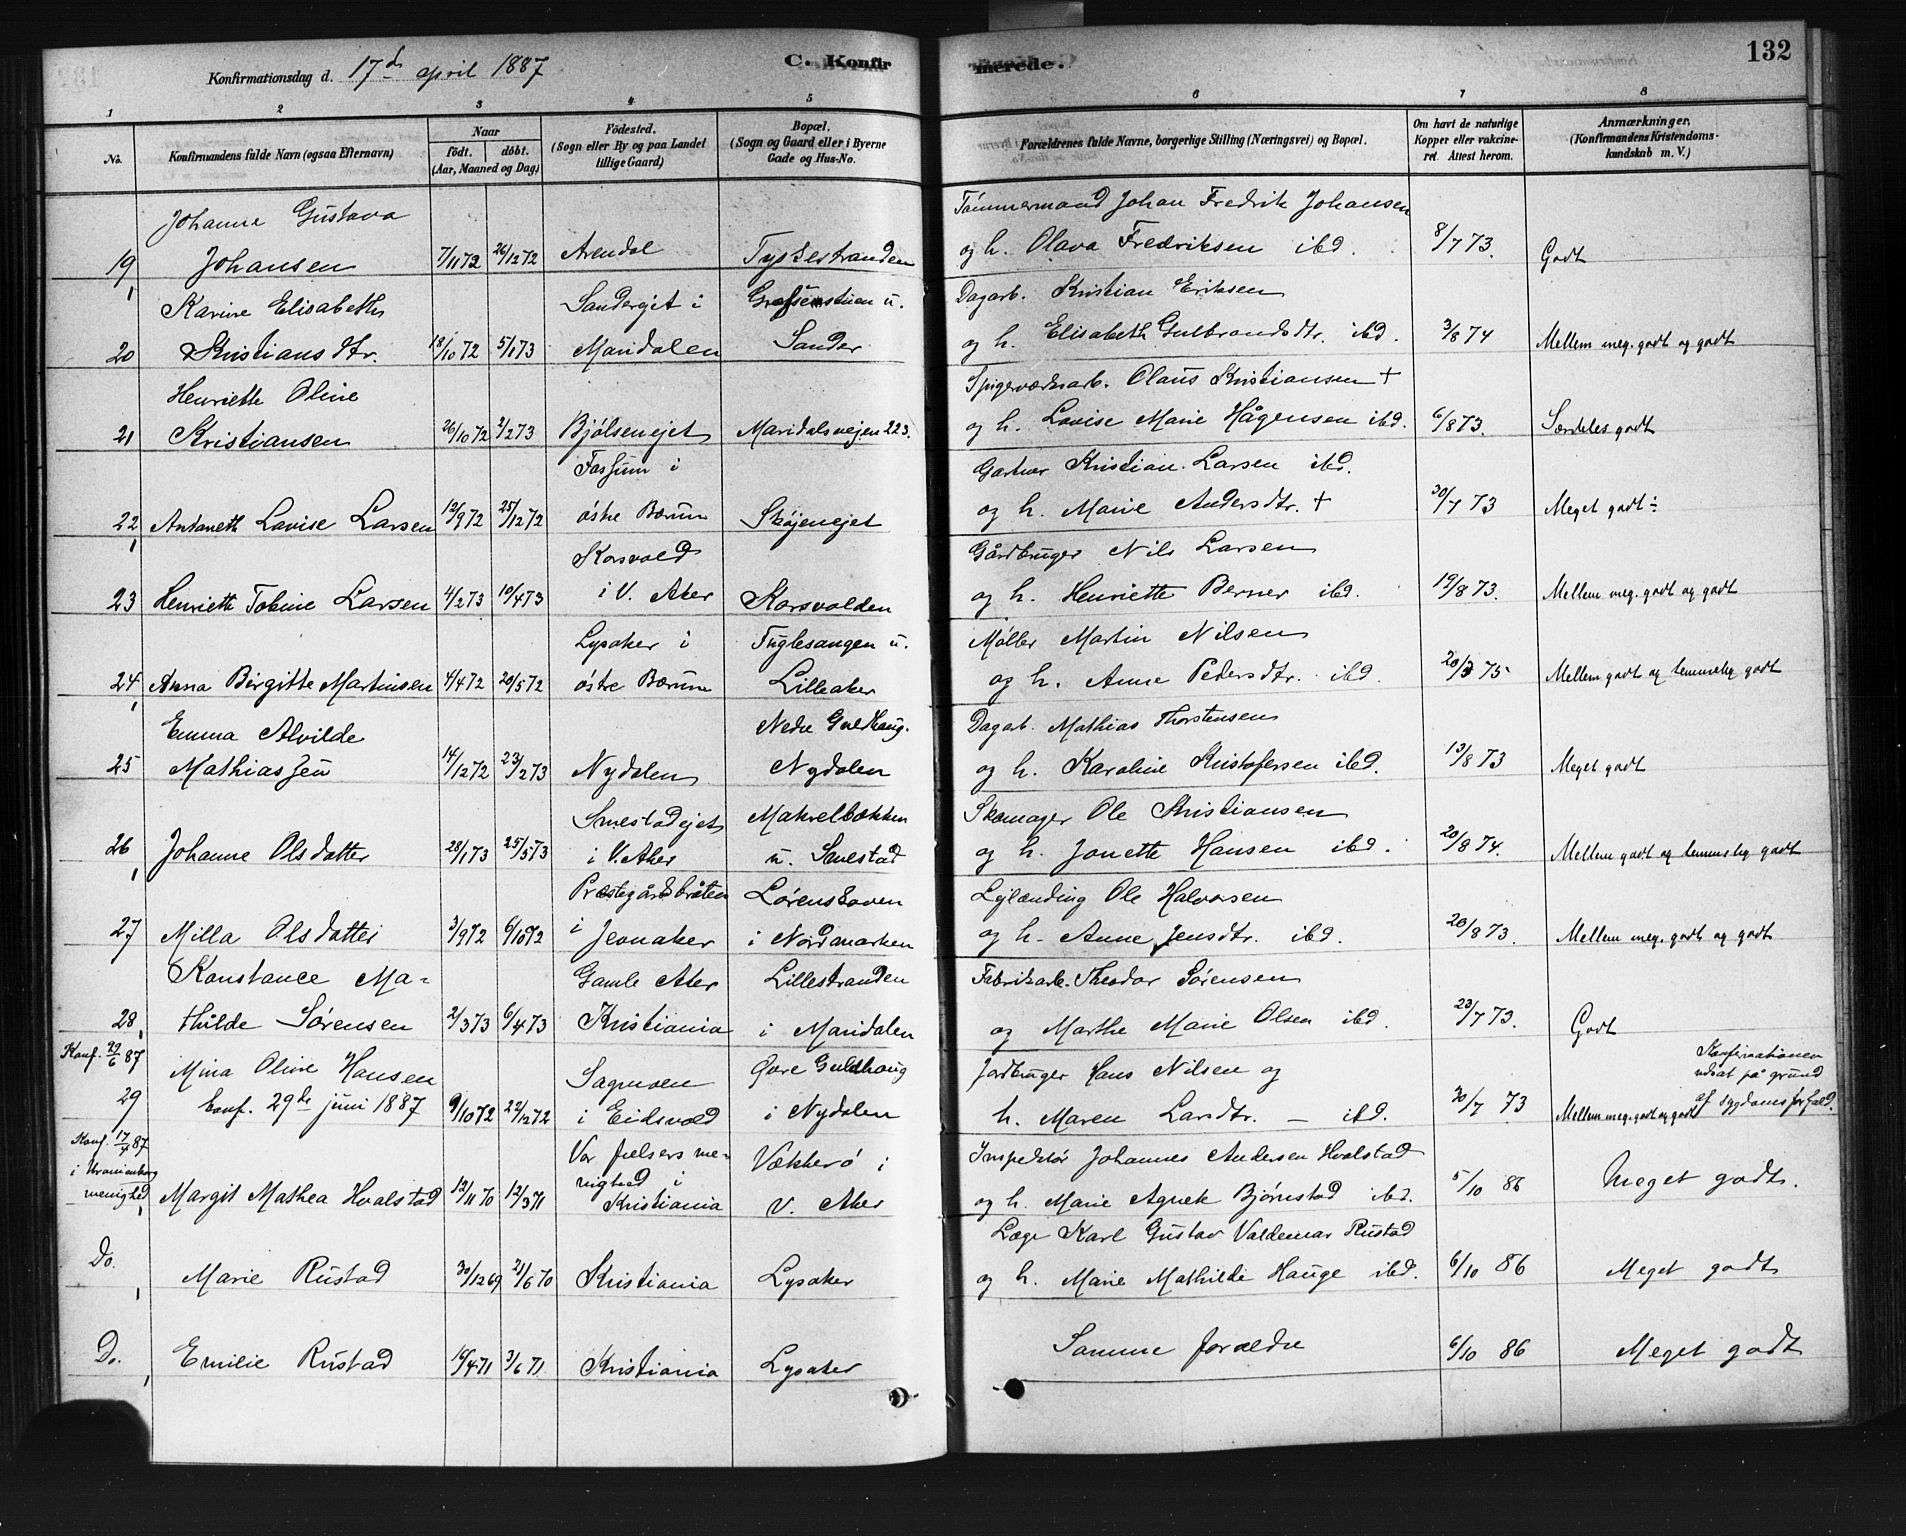 132
Konfirmationsdag d. 17d april 1887
C. Konfirmerede.
1 2 3 4 5 6 7 8
No.
Konfirmandens fulde Navn (ogsaa Efternavn)
Naar
født. døbt.
(Aar, Maaned og Dag)
Fødested.
(Sogn eller By og paa Landet
tillige Gaard)
Bopæl.
(Sogn og Gaard eller i Byerne
Gade og Hus-No.
Forældrenes fulde Navne, borgerlige Stilling (Næringsvei) og Bopæl.
Om havt de naturlige
Kopper eller vakcine-
ret. Attest herom.
Anmærkninger.
(Konfirmandens Kristendoms-
kundskab m. V.)
Johanne Gustava
Tømmermand Johan Fredrik Johansen
19 Johansen 7/11 72 26/12 72 Arendal Tyskestranden og h. Olava Fredriksen ibd. 8/7 73. Godt
Karine Elisabeth Sanderejet i Grefsenstuen u. Dagarb. Kristian Eriksen
20 Kristiansdtr. 18/10 72 5/1 73 Maridalen Sander og h. Elisabeth Gulbrandsdtr. ibd. 3/8 74 Mellem meg. godt og godt
Henriette Oline Spigerværksarb. Olaus Kristiansen +
21 Kristiansen 26/10 72 2/2 73 Bjølsenejet Maridalsvejen 223. og h. Lovise Marie Hågensen ibd. 6/8 73. Særdeles godt
Fossum i Gartner Kristian Larsen ibd.
22 Antonette Lovise Larsen 12/9 72 25/12 72 østre Bærum Skøjenejet og h. Marie Andersdtr. + 30/7 73 Meget godt ÷
Korsvold Gårdbruger Nils Larsen
23 Henriette Tobine Larsen 4/2 73 10/4 73 i V. Aker Korsvolden og h. Henriette Berner ibd. 19/8 73. Mellem meg. godt og godt
Lysaker i Fuglesangen u. Møller Martin Nilsen
24 Anna Birgitte Martinsen 4/4 72 20/5 72 østre Bærum Lilleaker og h. Anne Pedersdtr. ibd. 20/3 75 Mellem godt og temmelig godt
Emma Alvilde Nedre Guldhaug. Dagarb. Mathias Thorstensen
25 Mathiassen 14/12 72 23/2 73 Nydalen Nydalen og h. Karoline Kristofersen ibd. 13/8 73 Meget godt
Smestadejet Makrelbækken Skomager Ole Kristiansen
26 Johanne Olsdatter 28/1 73 25/5 73 i V. Aker u. Smestad og h. Jonette Hansen ibd. 20/8 74. Mellem godt og temmelig godt
Præstegårdsbråten Lørenskoven Ole Halvorsen
27 Milla Olsdatter 3/9 72 6/10 72 i Jevnaker i Nordmarken og h. Anne Jensdtr. ibd. 20/8 73. Mellem meg. godt og godt
Konstance Ma- Gamle Aker Lillestranden Fabrikarb. Theodor Sørensen
28 thilde Sørensen 2/3 73 6/4 73 Kristiania i Maridalen og Marthe Marie Olsen ibd. 23/7 73. Godt
Konf. 29/6 87 Mina Oline Hansen Sagmoen Øvre Guldhaug Jordbruger Hans Nilsen og Konfirmationen
udsat på grund
af sygdomsforfald.
29 Conf. 29de juni 1887 9/10 72 22/12 72 i Eidsvold i Nydalen h. Maren Larsdtr. — ibd. 30/7 73 Mellem meg. godt og godt
Konf. 17/4 87 Vor frelsers me- Vækkerø i Inspektør Johannes Andersen Hvalstad
i Uranienborg
menighed Margit Mathea Hvalstad 12/11 70 12/3 71 nighed i
Kristiania V. Aker og h. Marie Agnete Bjørnstad ibd. 5/10 86 Meget godt.
Læge Karl Gustav Valdemar Rustad
Do. Marie Rustad 30/12 69 21/6 70 Kristiania Lysaker og h. Marie Mathilde Hauge ibd. 6/10 86 Meget godt
Do. Emilie Rustad 16/4 71 3/6 71 Kristiania Lysaker Samme forældre 6/10 86 Meget godt